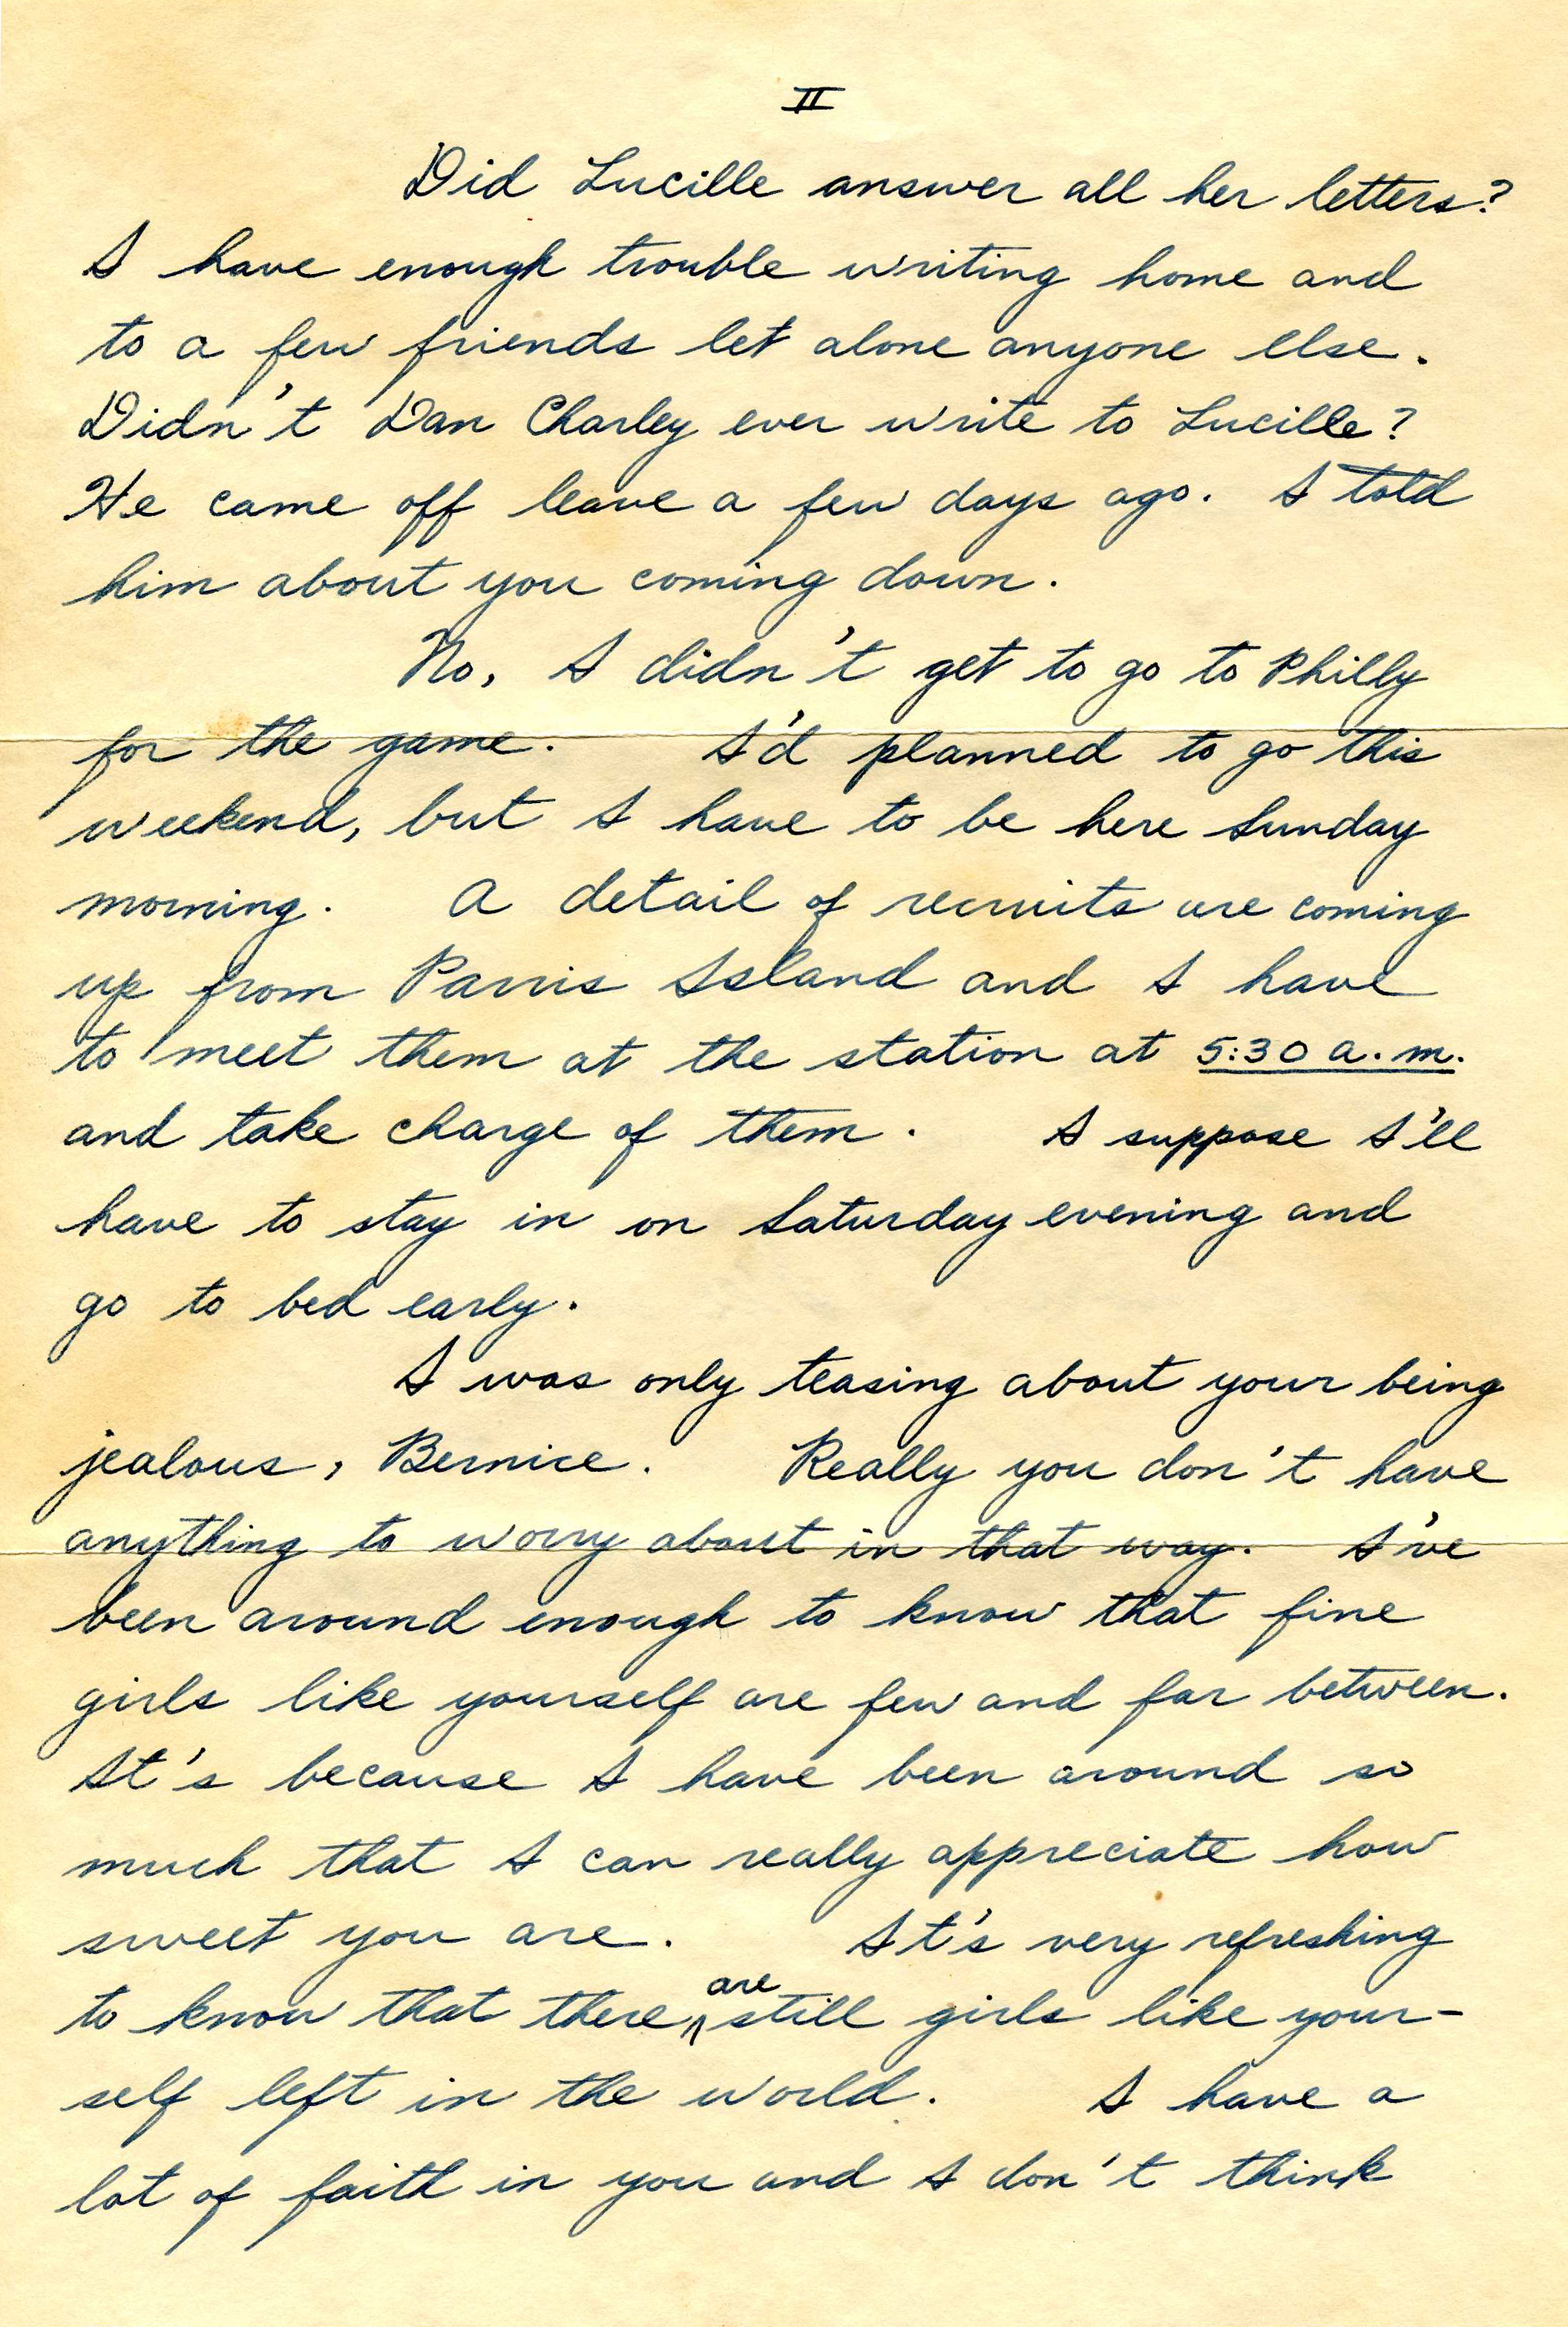 II
Did Lucille answer all her letters?
I have enough trouble writing home and
to a few friends let alone anyone else.
Didn't Dan Charley ever write to Lucille?
He came off leave a few days ago. I told
him about you coming down.
No, I didn't get to go to Philly
for the game. I'd planned to go this
weekend, but I have to be here Sunday
morning. A detail of recruits are coming
up from Parris Island and I have
to meet them at the station at 5:30 a.m.
and take charge of them. I suppose I'll
have to stay in on Saturday evening and
go to bed early.
I was only teasing about your being
jealous, Bernice. Really you don't have
anything to worry about in that way. I've
been around enough to know that fine
girls like yourself are few and far between.
It's because I have been around so
much that I can really appreciate how
sweet you are. It's very refreshing
to know that there are still girls like your-
self left in the world. I have a
lot of faith in you and I don't think